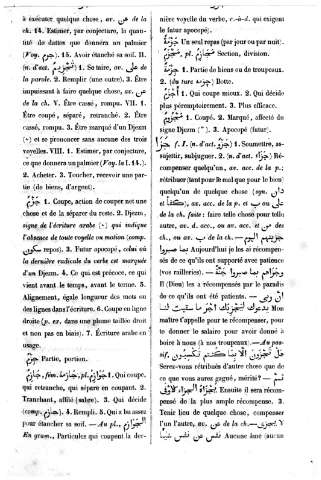 à exécuter quelque chose, av. عن de la
ch. 14. Estimer, par conjecture, la quan-
tité de dattes que donnera un palmier
(Voy. خرص). 15. Avoir étanché sa soif. II.
(n. d'act. تجزيم) 1. Se taire, av. على de
la parole. 2. Remplir (une outre). 3. Être
impuissant à faire quelque chose, av. عن
de la ch. V. Être cassé, rompu. VII. 1.
Être coupé, séparé, retranché. 2. Être
cassé, rompu. 3. Être marqué d'un Djezm
(ْ) et se prononcer sans aucune des trois
voyelles. VIII. 1. Estimer, par conjecture,
ce que donnera un palmier (Voy. la I. 14.).
2. Acheter. 3. Toucher, recevoir une par-
tie (de biens, d'argent).
جزم 1. Coupe, action de couper net une
chose et de la séparer du reste. 2. Djezm,
signe de l'écriture arabe (ْ) qui indique
l'absence de toute voyelle ou motion (comp.
سكون repos). 3. Futur apocopé, celui où
la dernière radicale du verbe est marquée
d'un Djezm. 4. Ce qui est précoce, ce qui
vient avant le temps, avant le terme. 5.
Alignement, égale longueur des mots ou
des lignes dans l'écriture. 6. Coupe en ligne
droite (p. ex. dans une plume taillée droit
et non pas en biais). 7. Écriture arabe en
usage.
جزم Partie, portion.
جازم, fém. جازمة, pl. جوازم 1. Qui coupe,
qui retranche, qui sépare en coupant. 2.
Tranchant, affilé (sabre). 3. Qui décide
(comp. جازم). 4. Rempli. 5. Qui a bu assez
pour étancher sa soif. — Au pl., جوازم
En gram., Particules qui coupent la der-
nière voyelle du verbe, c.-à-d. qui exigent
le futur apocopé).
جزمة Un seul repas (par jour ou par nuit).
جزمة, pl. جزم Section, division.
جزمة 1. Partie de biens ou de troupeaux.
2. (du turc جزمه) Botte.
أجزم 1. Qui coupe mieux. 2. Qui décide
plus péremptoirement. 3. Plus efficace.
مجزوم 1. Coupé. 2. Marqué, affecté du
signe Djezm (ْ). 3. Apocopé (futur).
جزا f. I. (n. d'act. جزو) 1. Soumettre, as-
sujettir, subjuguer. 2. (n. d'act. جزاء) Ré-
compenser quelqu'un, av. acc. de la p.;
rétribuer (tant pour le mal que pour le bien)
quelqu'un de quelque chose (syn. دان
et كافأ), av. acc. de la p. et ب ou على
de la ch. faite : faire telle chose pour telle
autre, av. d. acc., ou av. acc. et des
ch., ou av. de la ch. — جزيتهم اليوم
بما صبروا Aujourd'hui je les ai récompen-
sés de ce qu'ils ont supporté avec patience
(vos railleries). — وجزاهم بما صبروا جنة
Il (Dieu) les a récompensés par le paradis
de ce qu'ils ont été patients. — ان ربى
يدعوك ليجزيك اجر ما سقيت لنا Mon
maître t'appelle pour te récompenser, pour
te donner le salaire pour avoir donné à
boire à nous (à nos troupeaux). — Au pas-
sif, هل تجزون الا بما كنتم تكسبون
Serez-vous rétribués d'autre chose que de
ce que vous aurez gagné, mérité? — ثم
يجزاه الجزاء الاوفى Ensuite il sera récom-
pensé de la plus ample récompense. 3.
Tenir lieu de quelque chose, compenser
l'un l'autre, av. عن de la ch. — لا تجزى
نفس عن نفس شيئا Aucune âme (aucun